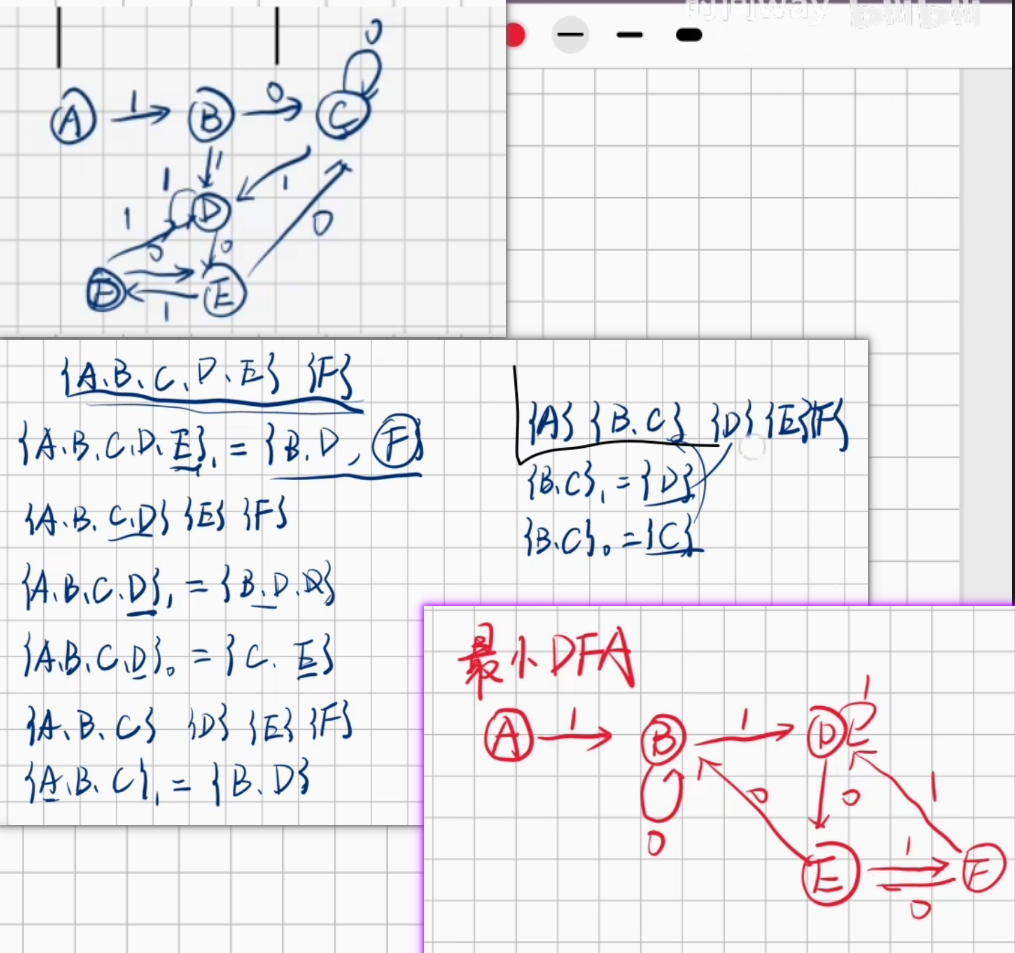 A 1 B 0 C 0
1 1 1 D
1 0 0 0
F 1 E
{A.B.C.D.E} {F}
{A.B.C.D.E}₁ = {B.D, F}
{A.B.C.D} {E} {F}
{A.B.C.D}₁ = {B.D.D}
{A.B.C.D}₀ = {C.E}
{A.B.C} {D} {E} {F}
{A.B.C}₁ = {B.D}
{A} {B.C} {D} {E} {F}
{B.C}₁ = {D}
{B.C}₀ = {C}
最小DFA
A 1 B 1 D 1
0 0 0 1
E 1 F
0